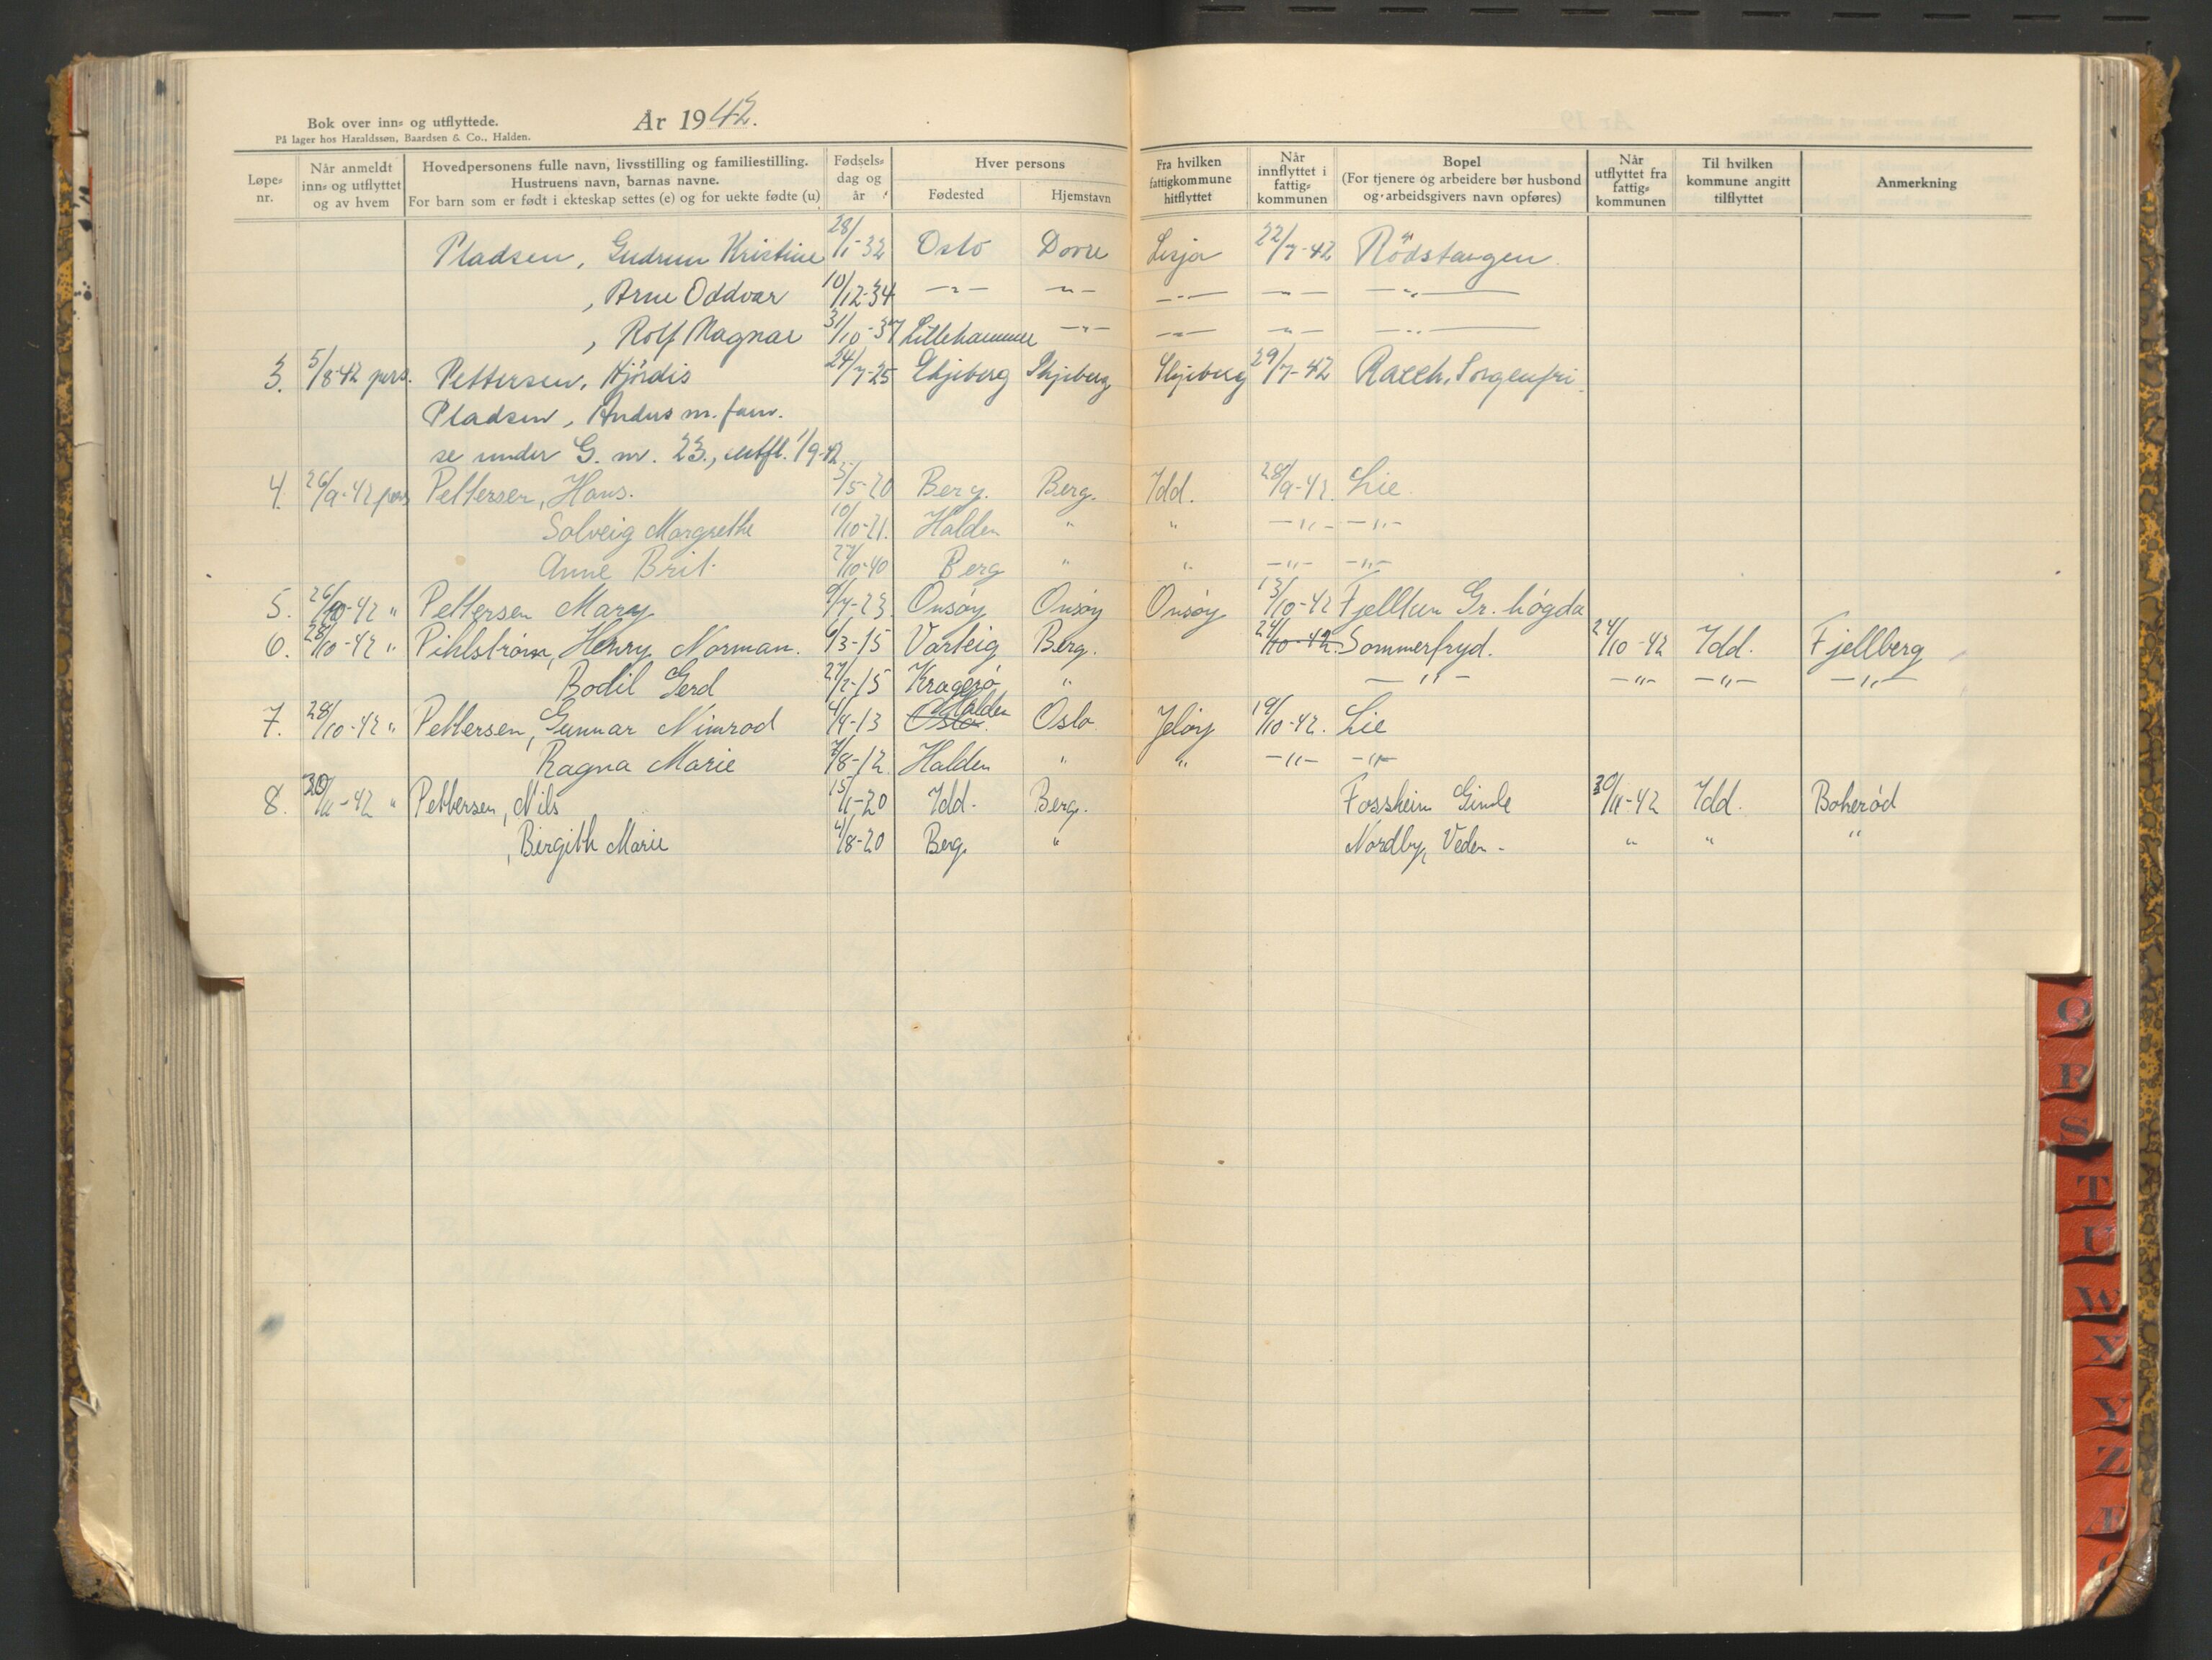 Bok over inn= og utflyttede.
På lager hos Haraldssøn, Baardsen & Co., Halden.
År 1942.
Løpe=nr. Når anmeldt inn= og utflyttet og av hvem Hovedpersonens fulle navn, livsstilling og familiestilling. Hustruens navn, barnas navne. For barn som er født i ekteskap settes (e) og for uekte fødte (u) Fødsels=dag og år Hver persons Fødested Hjemstavn Fra hvilken fattigkommune hitflyttet Når innflyttet i fattig=kommunen Bopel (For tjenere og arbeidere bør husbond og arbeidsgivers navn opføres) Når utflyttet fra fattig=kommunen Til hvilken kommune angitt tilflyttet Anmerkning
Pladsen, Gudrun Kristine 28/1-32 Oslo Dovre Lesja 22/7-42 Rödstangen
, Arne Oddvar 10/12-34 —„— —„— —„— —„— —„—
, Rolf Magnar 31/10-37 Lillehammer —„— —„— —„— —„—
3. 5/8-42 pers. Pettersen, Hjördis 24/7-25 Skjeberg Skjeberg Skjeberg 29/7-42 Sorgenfri
Pladsen, Anders m. fam.
se under G. nr. 23., utfl. 1/9-42
4. 26/9-42 pers Pettersen, Hans. 5/5-20 Berg. Berg. Idd. 28/9-42. Lie.
Solveig Margrethe 10/10-21. Halden " " —"— —"—
Anne Brit. 27/10-40 Berg " " —"— —"—
5. 26/10-42 " Pettersen Mary 9/7-23. Onsøy Onsøy Onsøy 13/10-42 Fjelltun Gr. høgda
6. 28/10-42 " Pihlstrøm, Henry Norman. 9/3-15 Varteig Berg. 24/10-42. Sommerfryd. 24/10-42 Idd. Fjellberg
Bodil Gerd 27/2-15 Kragerø " —"— —"— —"— —"—
7. 28/10-42 " Pettersen, Gunnar Nimrod 4/4-13 Oslo. Halden Oslo Jeløy 19/10-42. Lie
Ragna Marie 7/8-12. Halden " " —"— —"—
8. 30/11-42 " Pettersen, Nils 15/11-20 Idd. Berg. Fossheim Gimle 30/11-42 Idd. Boherød
, Birgith Marie 4/8-20 Berg. " Nordby, Veden - " " "
Q
R
S
T
U
W
X
Y
Z
Æ